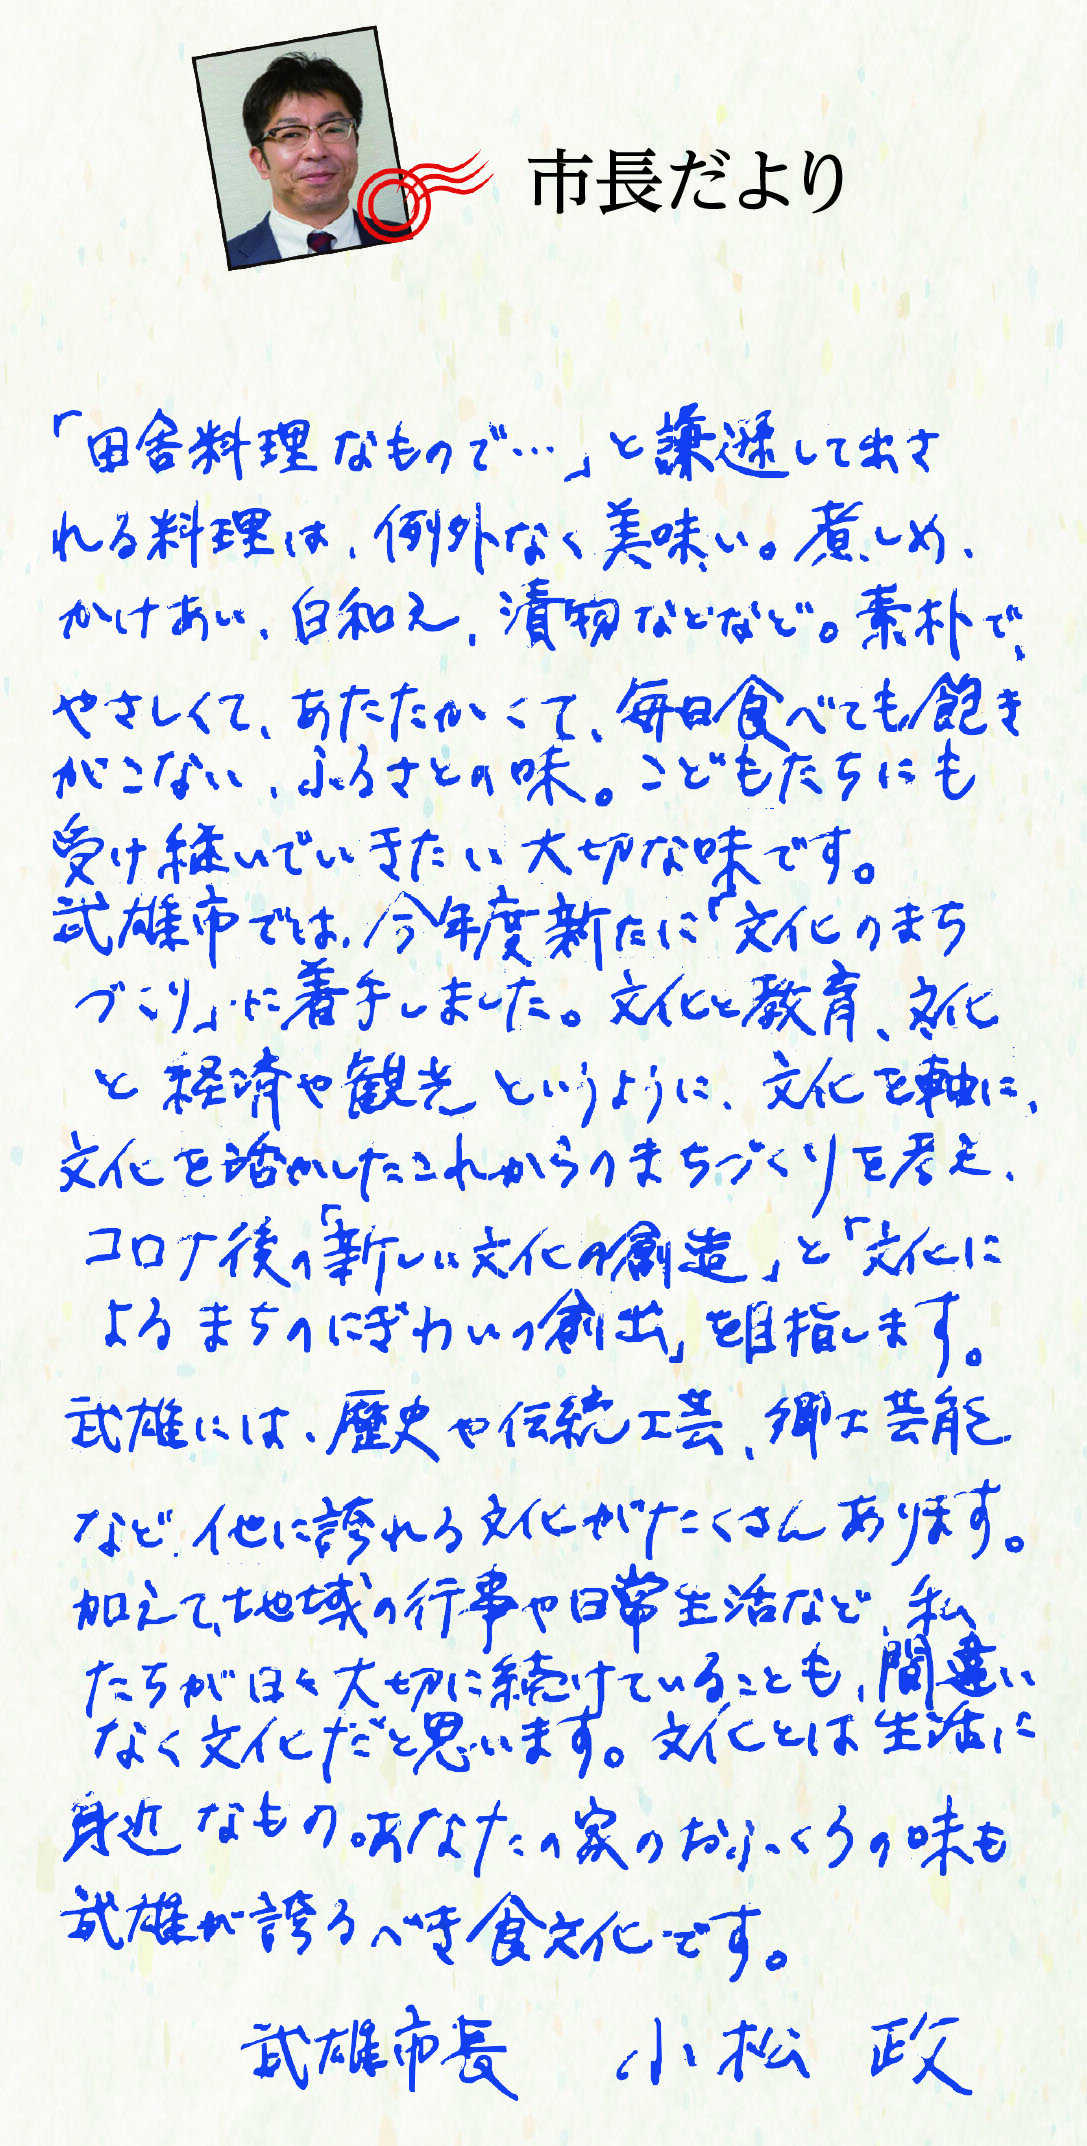 市長だより
「田舎料理なもので…」と謙遜して出さ
れる料理は、例外なく美味い。煮しめ、
かけあい、白和え、漬物などなど。素朴で、
やさしくて、あたたかくて、毎日食べても飽き
がこない、ふるさとの味。こどもたちにも
受け継いでいきたい大切な味です。
武雄市では、今年度新たに「文化のまち
づくり」に着手しました。文化と教育、文化
と経済や観光というように、文化を軸に、
文化を活かしたこれからのまちづくりを考え、
コロナ後の「新しい文化の創造」と「文化に
よるまちのにぎわいの創出」を目指します。
武雄には、歴史や伝統工芸、郷土芸能
など、他に誇れる文化がたくさんあります。
加えて、地域の行事や日常生活など、私
たちが日々大切に続けていることも、間違い
なく文化だと思います。文化とは生活に
身近なもの。あなたの家のおふくろの味も
武雄が誇るべき食文化です。
武雄市長 小松 政